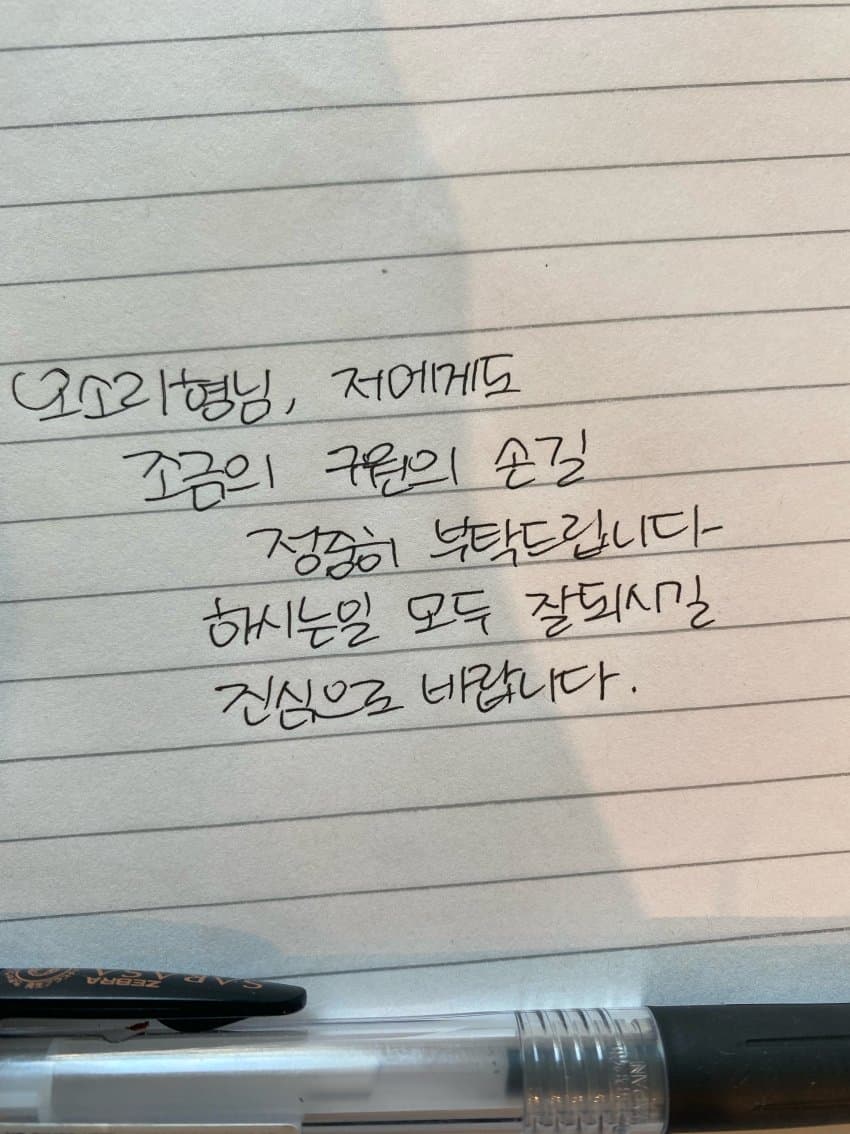 오소리형님, 저에게도
조금의 구원의 손길
정중히 부탁드립니다
하시는일 모두 잘되시길
진심으로 바랍니다.
SARASA
ZEBRA